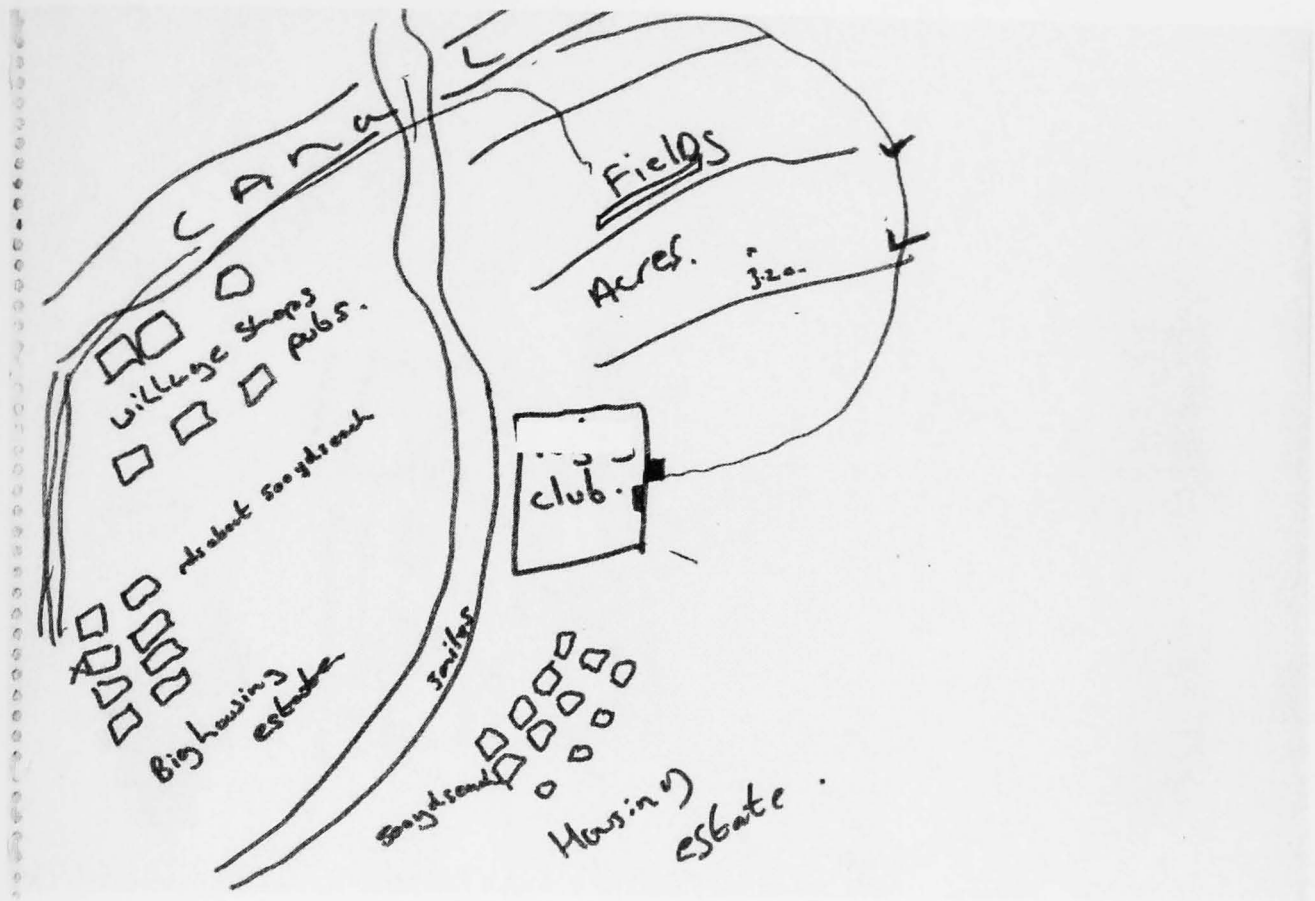 CAnaL
Fields
Acres.
320.
village shops
pubs.
club.
about 500yds each
Big housing
estate
5miles
500yds each
Housing
estate.